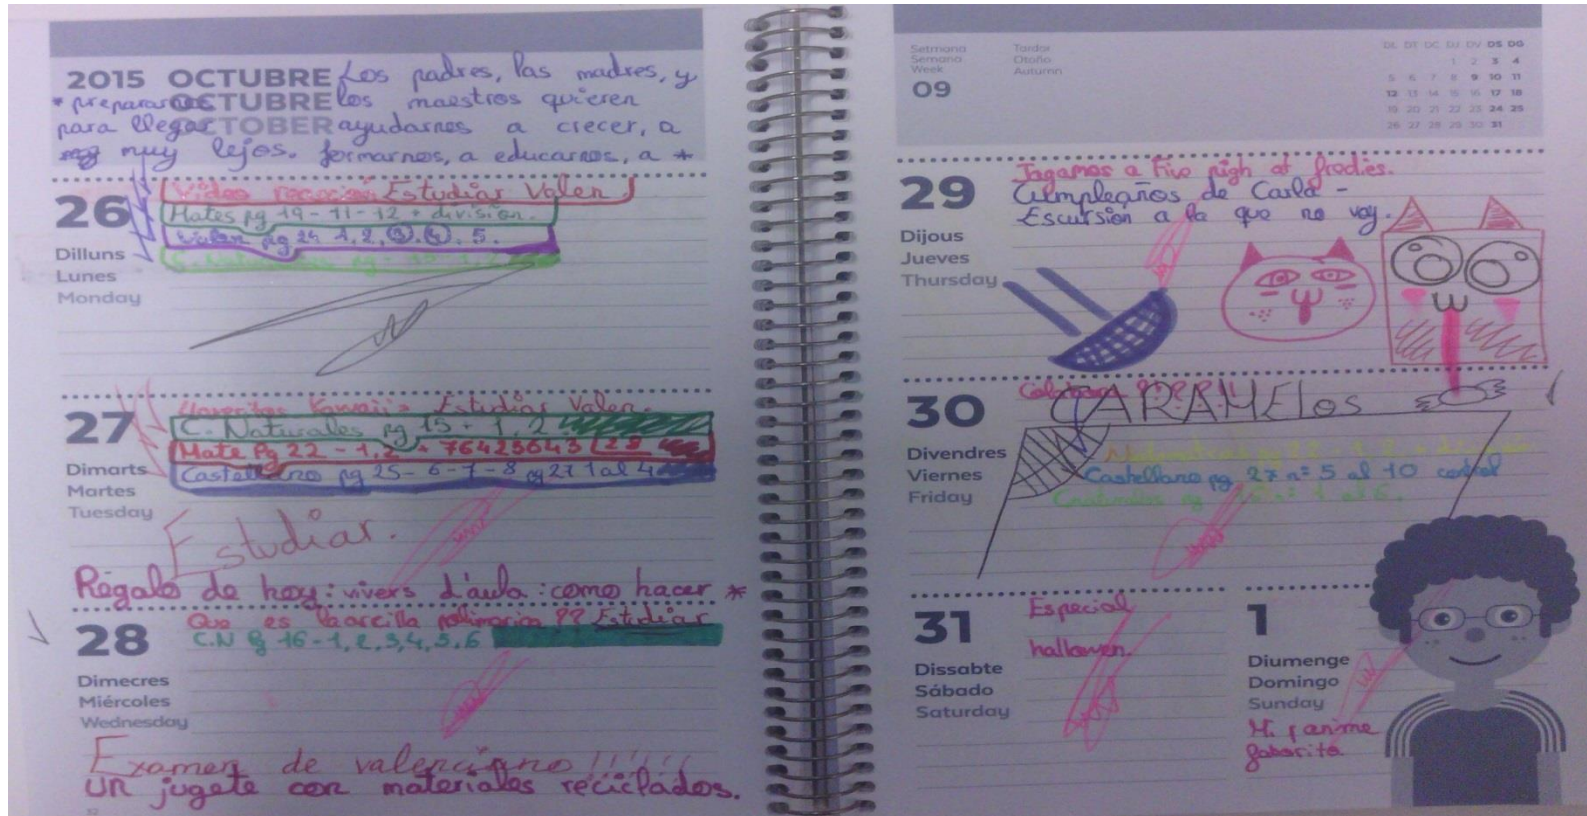 2015 OCTUBRE
OCTUBRE
OCTOBER
Los padres, las madres, y
los maestros quieren
ayudarnos a crecer, a
formarnos, a educarnos, a *
* prepararnos
para llegar
muy lejos.
26
Dilluns
Lunes
Monday
Video Estudiar Valen
Mates pg 19 - 11 - 12 + división.
Valen pg 24 1, 2, 3, 4, 5.
27
Dimarts
Martes
Tuesday
Kawaii Estudiar Valen.
C. Naturales pg 15 + 1, 2
Mate Pg 22 - 1, 2 + 76425643 28
Castellano pg 25 - 6 - 7 - 8 pg 27 1 al 4
Estudiar.
Régalo de hoy: vivers d'aula: como hacer *
28
Dimecres
Miércoles
Wednesday
Que es la arcilla polimerica ?? Estudiar
C.N Pg 16 - 1, 2, 3, 4, 5, 6
Examen de valenciano !!!!!!
un jugete con materiales reciclados.
32
Setmana
Semana
Week
09
Tardor
Otoño
Autumn
DL DT DC DJ DV DS DG
1 2 3 4
5 6 7 8 9 10 11
12 13 14 15 16 17 18
19 20 21 22 23 24 25
26 27 28 29 30 31
29
Dijous
Jueves
Thursday
Jugamos a Five nigh at fredies.
Cumpleaños de Carla -
Escursion a la que no voy.
30
Divendres
Viernes
Friday
CARAMELOS
Castellano pg 27 nº 5 al 10 control
31
Dissabte
Sábado
Saturday
Especial
hallowen.
1
Diumenge
Domingo
Sunday
Mi anime
faborita